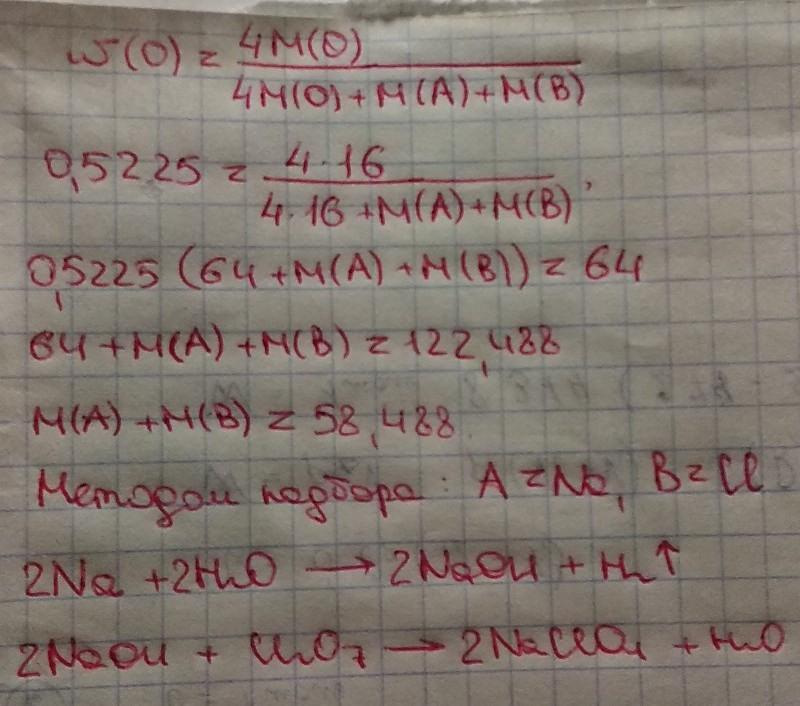 w(O) = 4M(O) / 4M(O)+M(A)+M(B)
0,5225 = 4·16 / 4·16+M(A)+M(B);
0,5225 (64 +M(A) +M(B)) = 64
64 +M(A) +M(B) = 122,488
M(A) +M(B) = 58,488
Методом подбора: A = Na, B = Cl
2Na +2H₂O → 2NaOH + H₂↑
2NaOH + Cl₂O₇ → 2NaClO₄ + H₂O